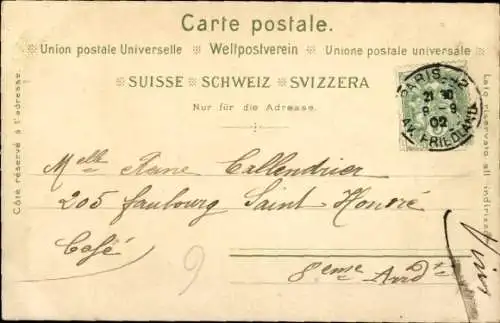 Carte postale.
Union postale Universelle Weltpostverein Unione postale universale
SUISSE SCHWEIZ SVIZZERA
Nur für die Adresse.
Côté réservé à l'adresse.
Lato riservato all' indirizzo
PARIS-12
21 30
9-9
02
AV. FRIEDLAND
Melle Anne Callendrier
205 faubourg Saint Honoré
Café
8eme Arrdt
9